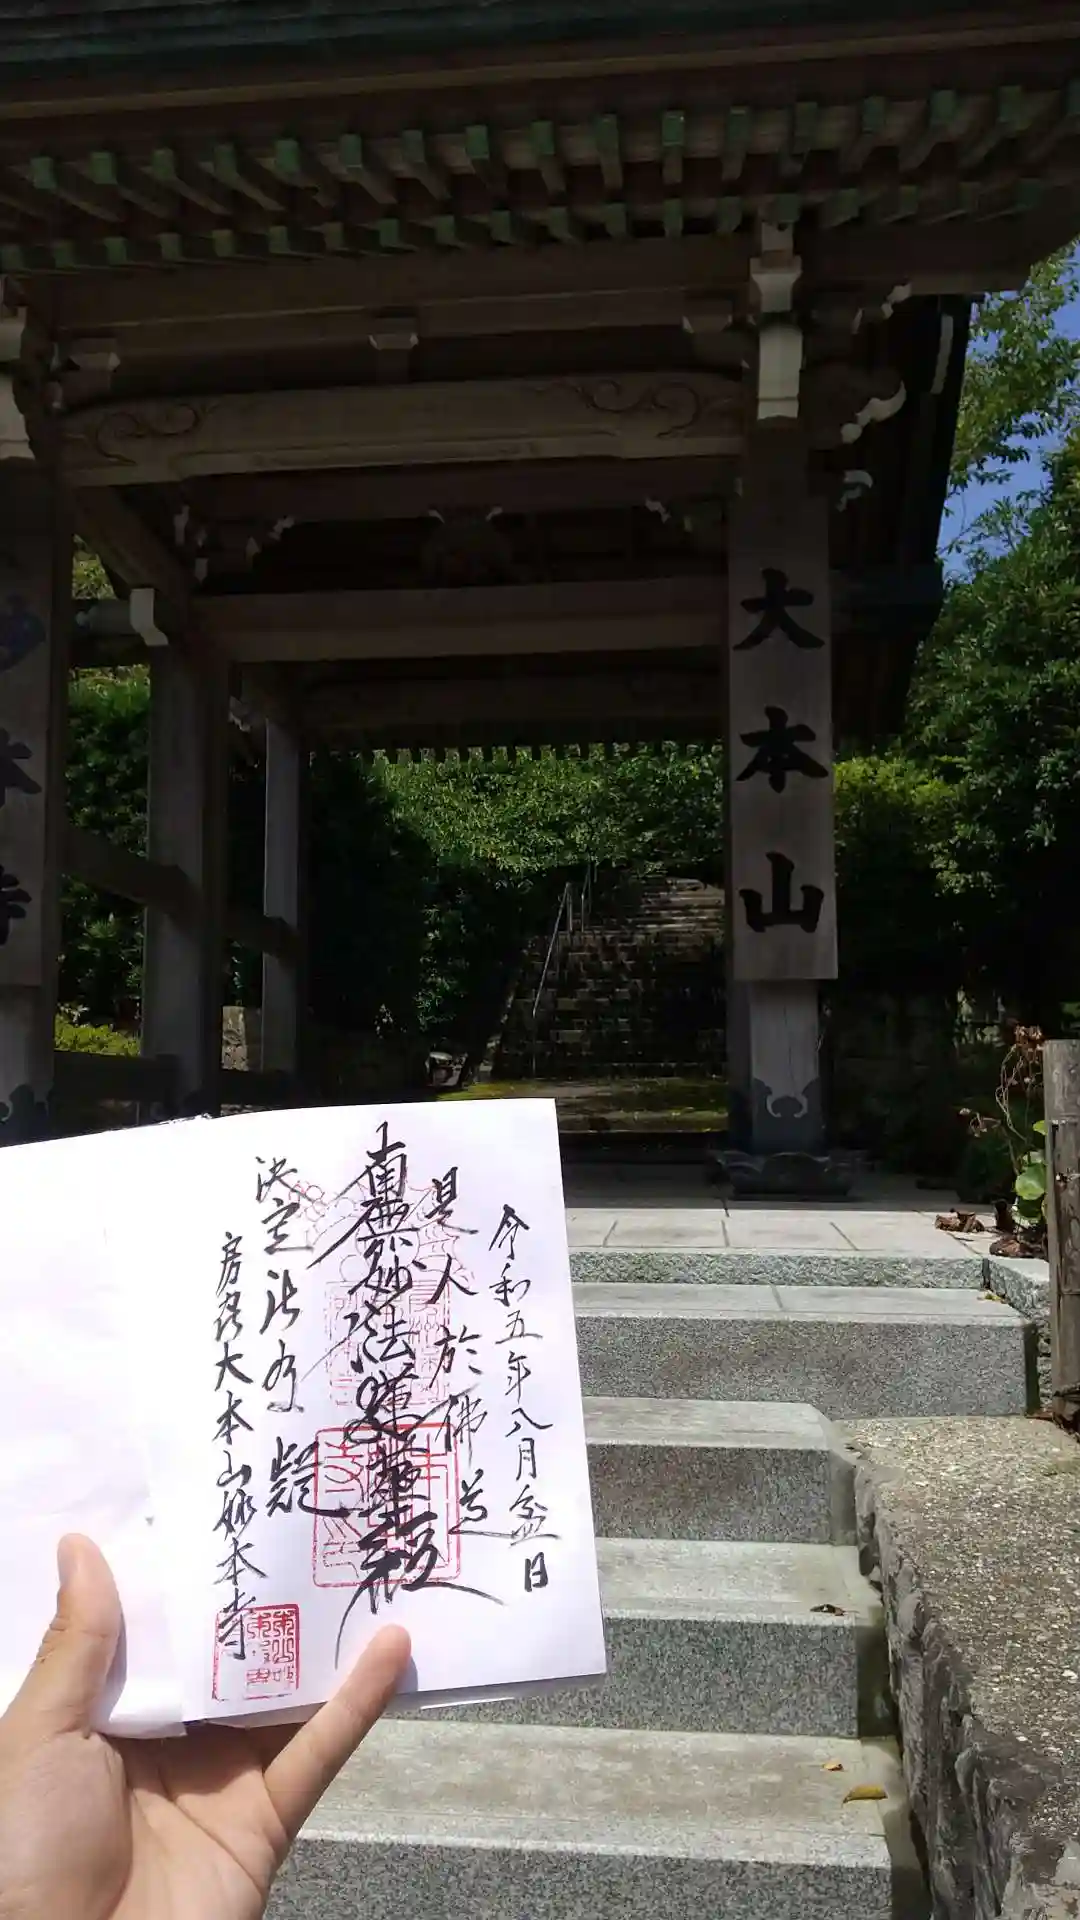 大本山
妙本寺
令和五年八月盆日
是人於佛道
南無妙法蓮華経
決定無有疑
房州大本山妙本寺